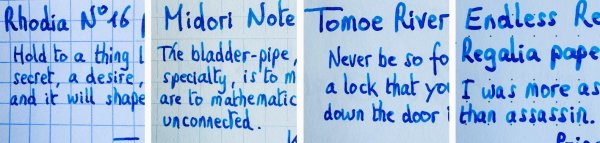 Rhodia N°16
Hold to a thing
secret, a desire,
and it will shape
Midori Note
The bladder-pipe,
specialty, is to m
are to mathematic
unconnected.
Tomoe River
Never be so fo
a lock that yo
down the door
Endless Re
Regalia pape
I was more as
than assassin.